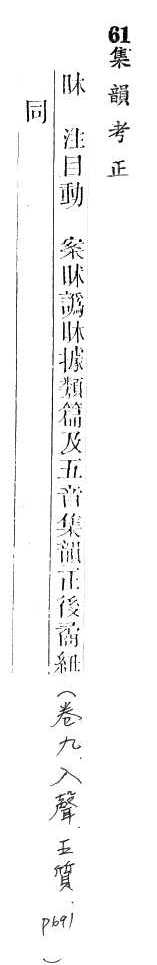 61集韻考正
眜 注目動 案眜譌眜據類篇及五音集韻正後矞紐(卷九.入聲.五質.p691)
同